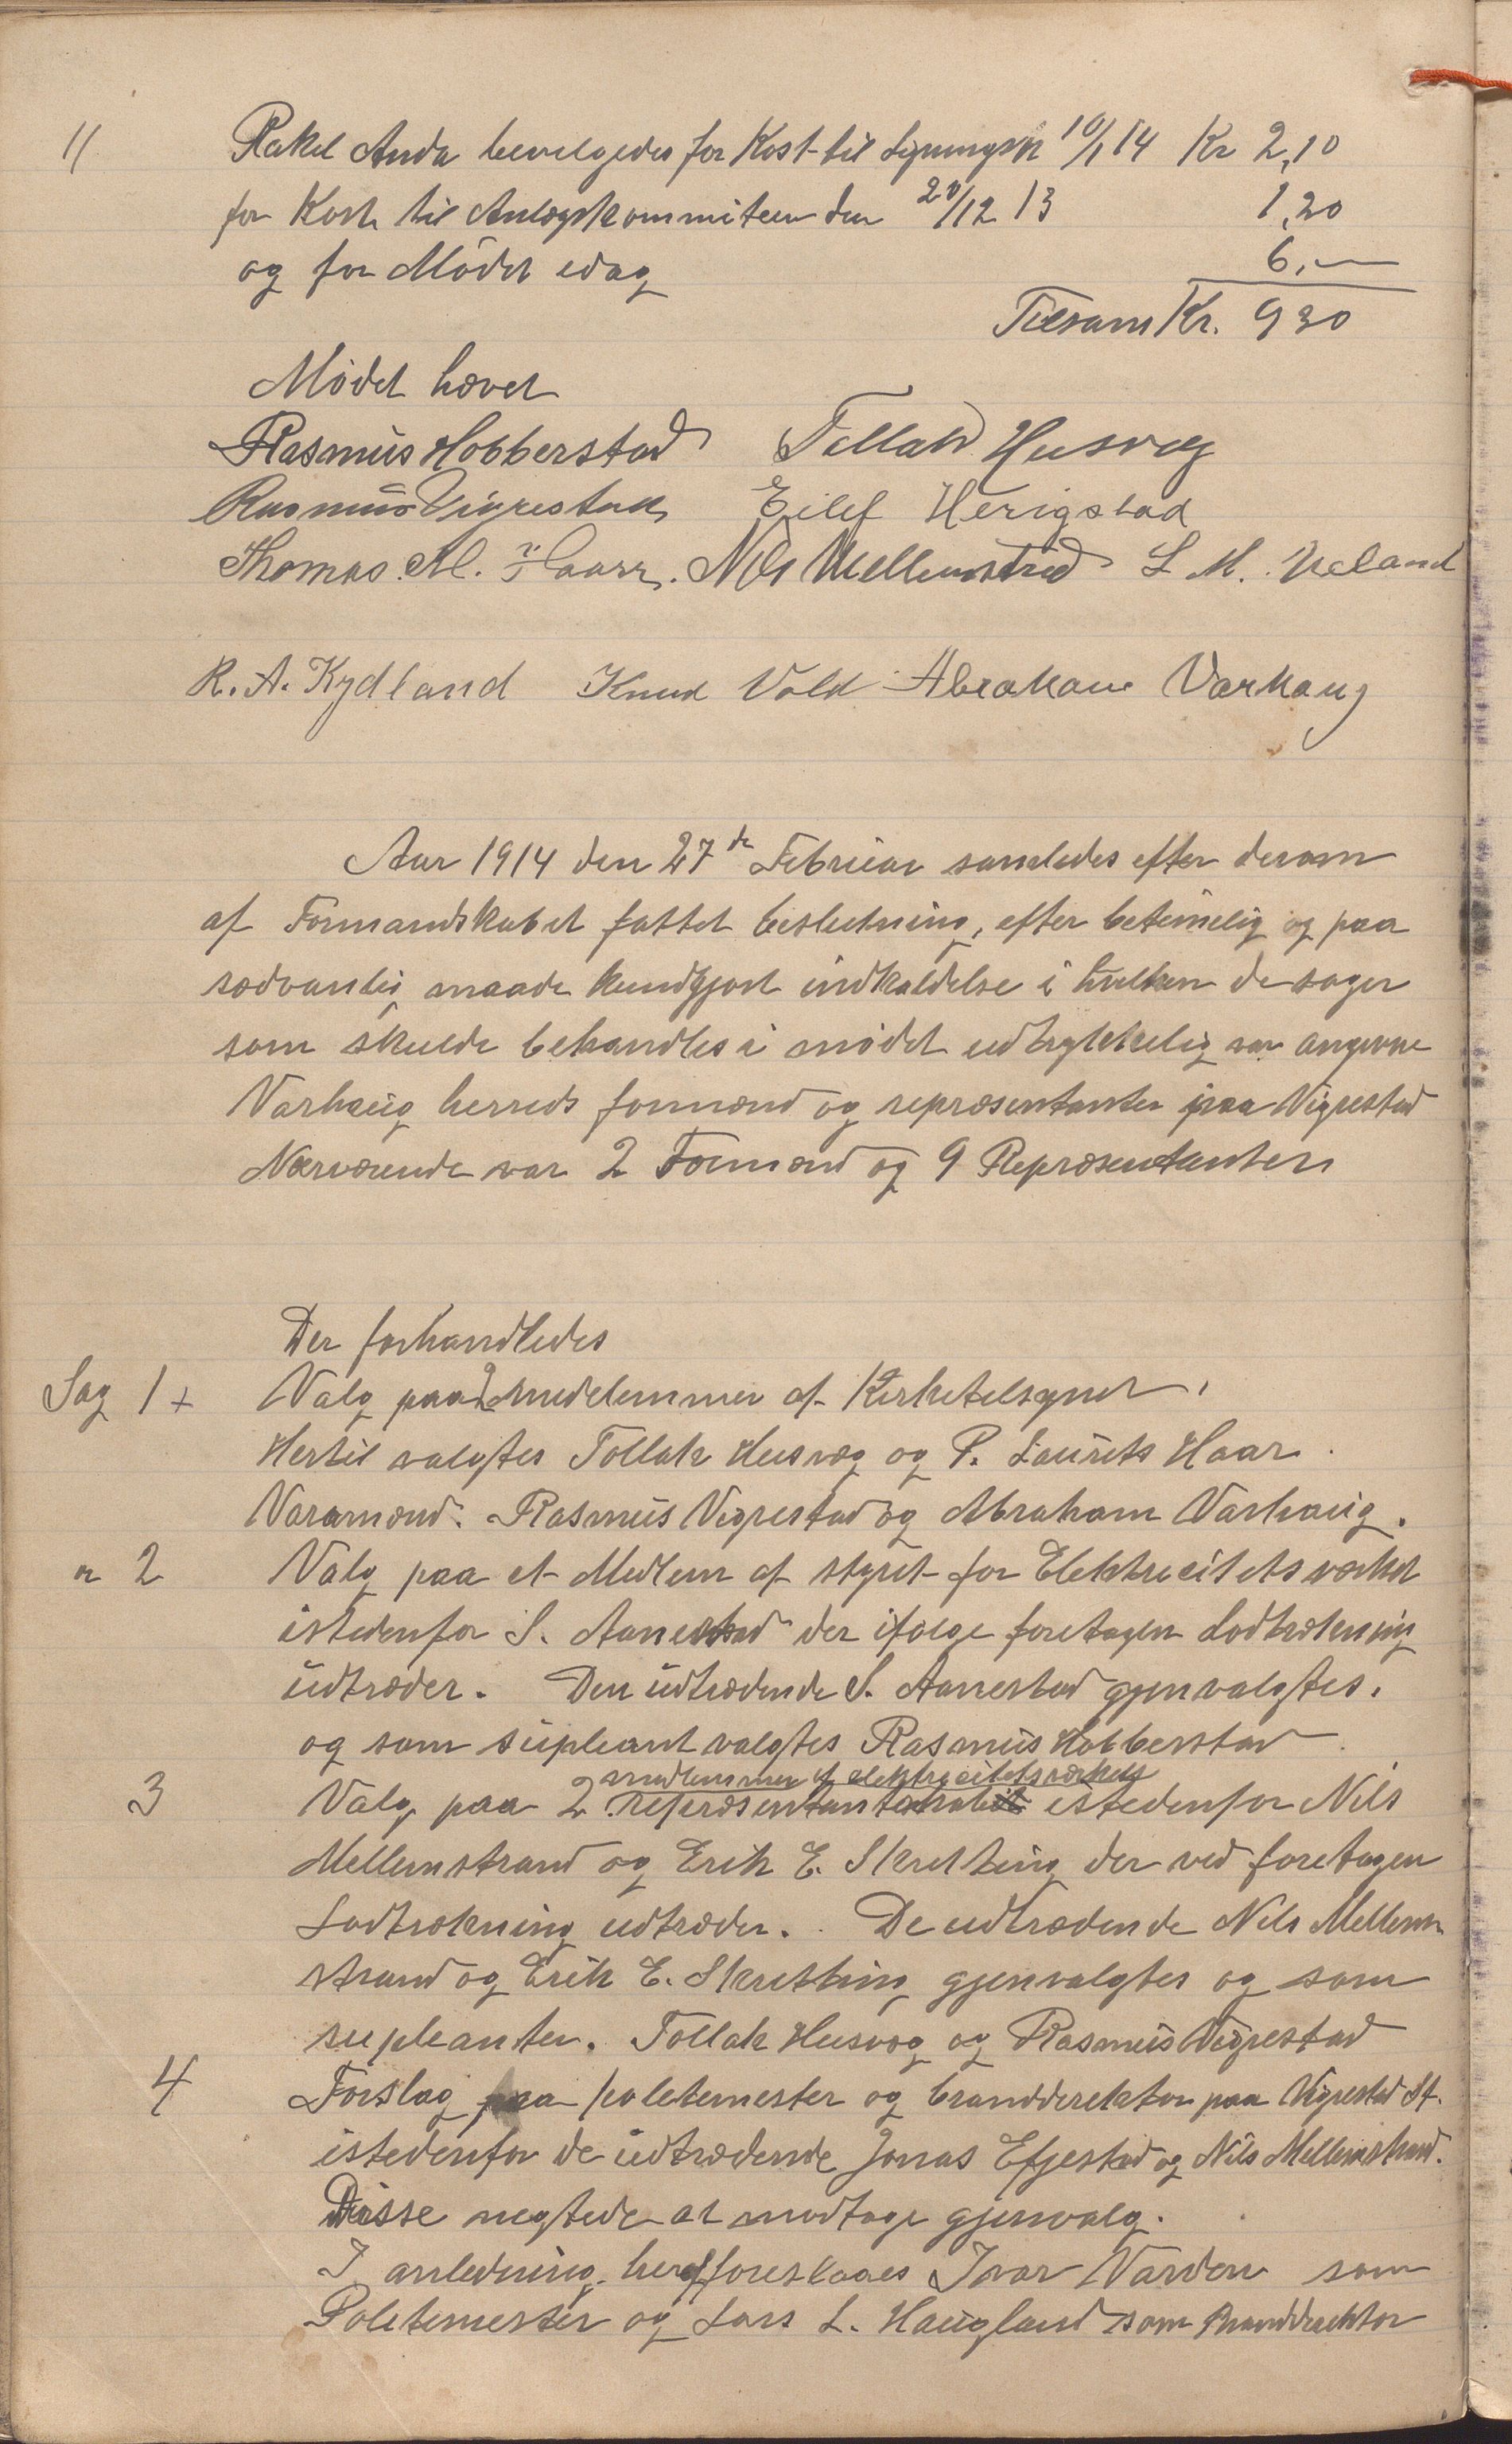 11 Rakel Anda bevelgedes for Kost til Ligningsk 10/1 14 Kr 2,10
for Kost til Anlægskommiteen den 20/12 13 1,20
og for Mödet idag 6,—
Tilsam Kr. 930
Mödet hævet
Rasmus Hobberstad Tollak Husveg
Rasmus Vigrestad Eilef Herigstad
Thomas. M. Haarr. Nils Mellemstrad L M. Ueland
R. A. Kydland Knud Vold Abraham Varhaug
Aar 1914 den 27de Februar samledes efter derom
af Formandskabet fattet beslutning, efter betimelig og paa
sædvanlig maade kundgjort indkaldelse i hvilken de sager
som skulde behandles i mödet udtrykkelig var angivne
Varhaug herreds formænd og repræsentanter paa Vigrestad
Nærværende var 2 Formænd og 9 Repræsentanter
Der forhandledes
Sag 1 + Valg paa 2 medlemmer af Kirketilsynet.
Hertil valgtes Tollak Husvæg og P. Laurits Haar.
Varamænd. Rasmus Vigrestad og Abraham Varhaug.
" 2 Valg paa et Medlem af styret for Elektricitetsværket
istedenfor S. Aanestad der ifölge foretagen Lodtrækning
udtræder. Den udtrædende S. Aanestad gjenvalgtes.
og som supleant valgtes Rasmus Hobberstad
medlemmer af elektricitetsværkets
3 Valg paa 2 repræsentantskab istedenfor Nils
Mellemstrand og Erik E. Skretting der ved foretagen
Lodtrækning udtræder. De udtrædende Nils Mellem
strand og Erik E. Skretting gjenvalgtes og som
supleanter. Tollak Husvæg og Rasmus Vigrestad
4 Forslag paa poletemester og branddirektor paa Vigrestad St.
istedenfor de udtrædende Jonas Efjestad og Nils Mellemstrand.
Disse negtede at modtage gjenvalg.
I anledning heraf foreslaaes Ivar Varden som
Poletemester og Lars L. Haugland som Branddirektor